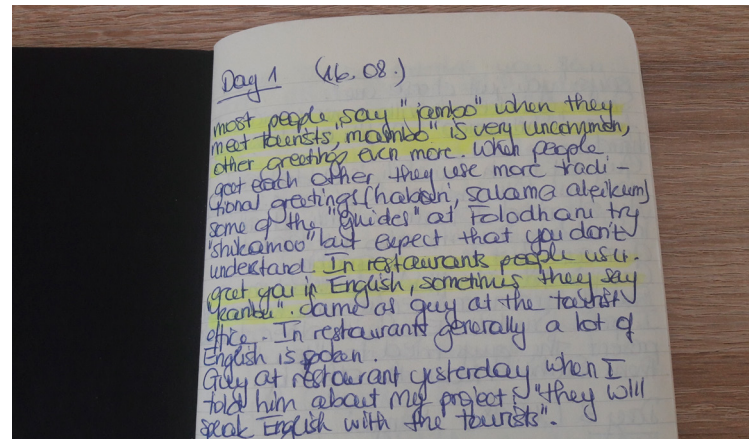 Day 1 (16.08.)
most people say "jambo" when they
meet tourists, "mambo" is very uncommon,
other greetings even more. When people
greet each other they use more tradi-
tional greetings (habari, salama aleikum)
some of the "guides" at Folodhani try
"shikamoo" but expect that you don't
understand. In restaurants people usu.
greet you in English, sometimes they say
"jambo". Same as guy at the tourist
office. In restaurants generally a lot of
English is spoken.
Guy at restaurant yesterday when I
told him about my project: "they will
speak English with the tourists".